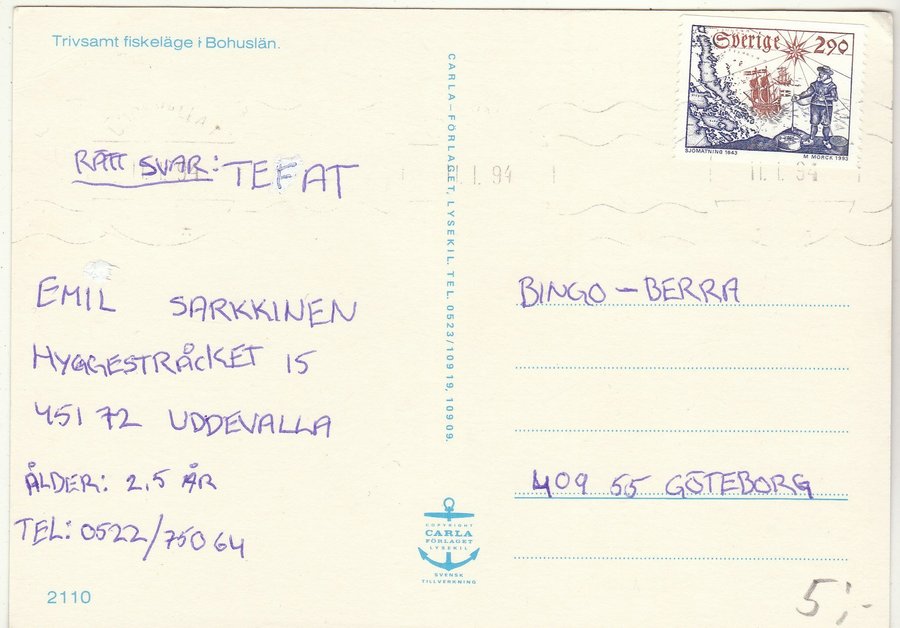 Trivsamt fiskeläge i Bohuslän.
Sverige 290
SJÖMÄTNING 1643 M MÖRCK 1993
11.1.94
RÄTT SVAR: TEFAT
EMIL SARKKINEN
HYGGESTRÅCKET 15
451 72 UDDEVALLA
ÅLDER: 2,5 ÅR
TEL: 0522/75064
2110
CARLA-FÖRLAGET, LYSEKIL. TEL. 0523/109 19, 109 09.
COPYRIGHT
CARLA
FÖRLAGET
LYSEKIL
SVENSK
TILLVERKNING
BINGO-BERRA
409 55 GÖTEBORG
5:-